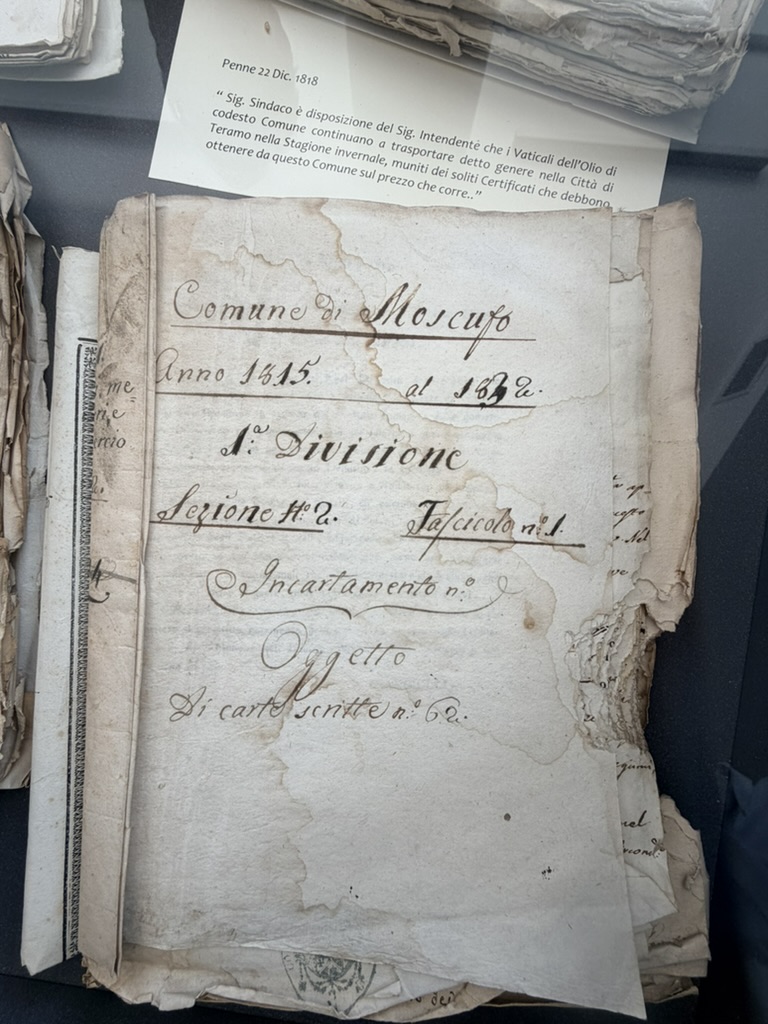 Penne 22 Dic. 1818
“ Sig. Sindaco è disposizione del Sig. Intendente che i Vaticali dell'Olio di
codesto Comune continuano a trasportare detto genere nella Città di
Teramo nella Stagione invernale, muniti dei soliti Certificati che debbono
ottenere da questo Comune sul prezzo che corre..”
Comune di Moscufo
Anno 1815. al 1832.
1.ª Divisione
Sezione N.º 2. Fascicolo n.º 1.
Incartamento n.º
Oggetto
Di carte scritte n.º 62.